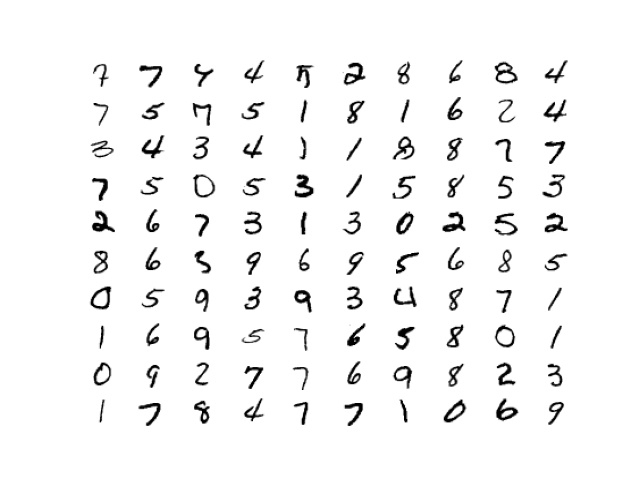 7 7 4 4 7 2 8 6 8 4
7 5 7 5 1 8 1 6 2 4
3 4 3 4 1 1 8 8 7 7
7 5 0 5 3 1 5 8 5 3
2 6 7 3 1 3 0 2 5 2
8 6 3 9 6 9 5 6 8 5
0 5 9 3 9 3 4 8 7 1
1 6 9 5 7 6 5 8 0 1
0 9 2 7 7 6 9 8 2 3
1 7 8 4 7 7 1 0 6 9